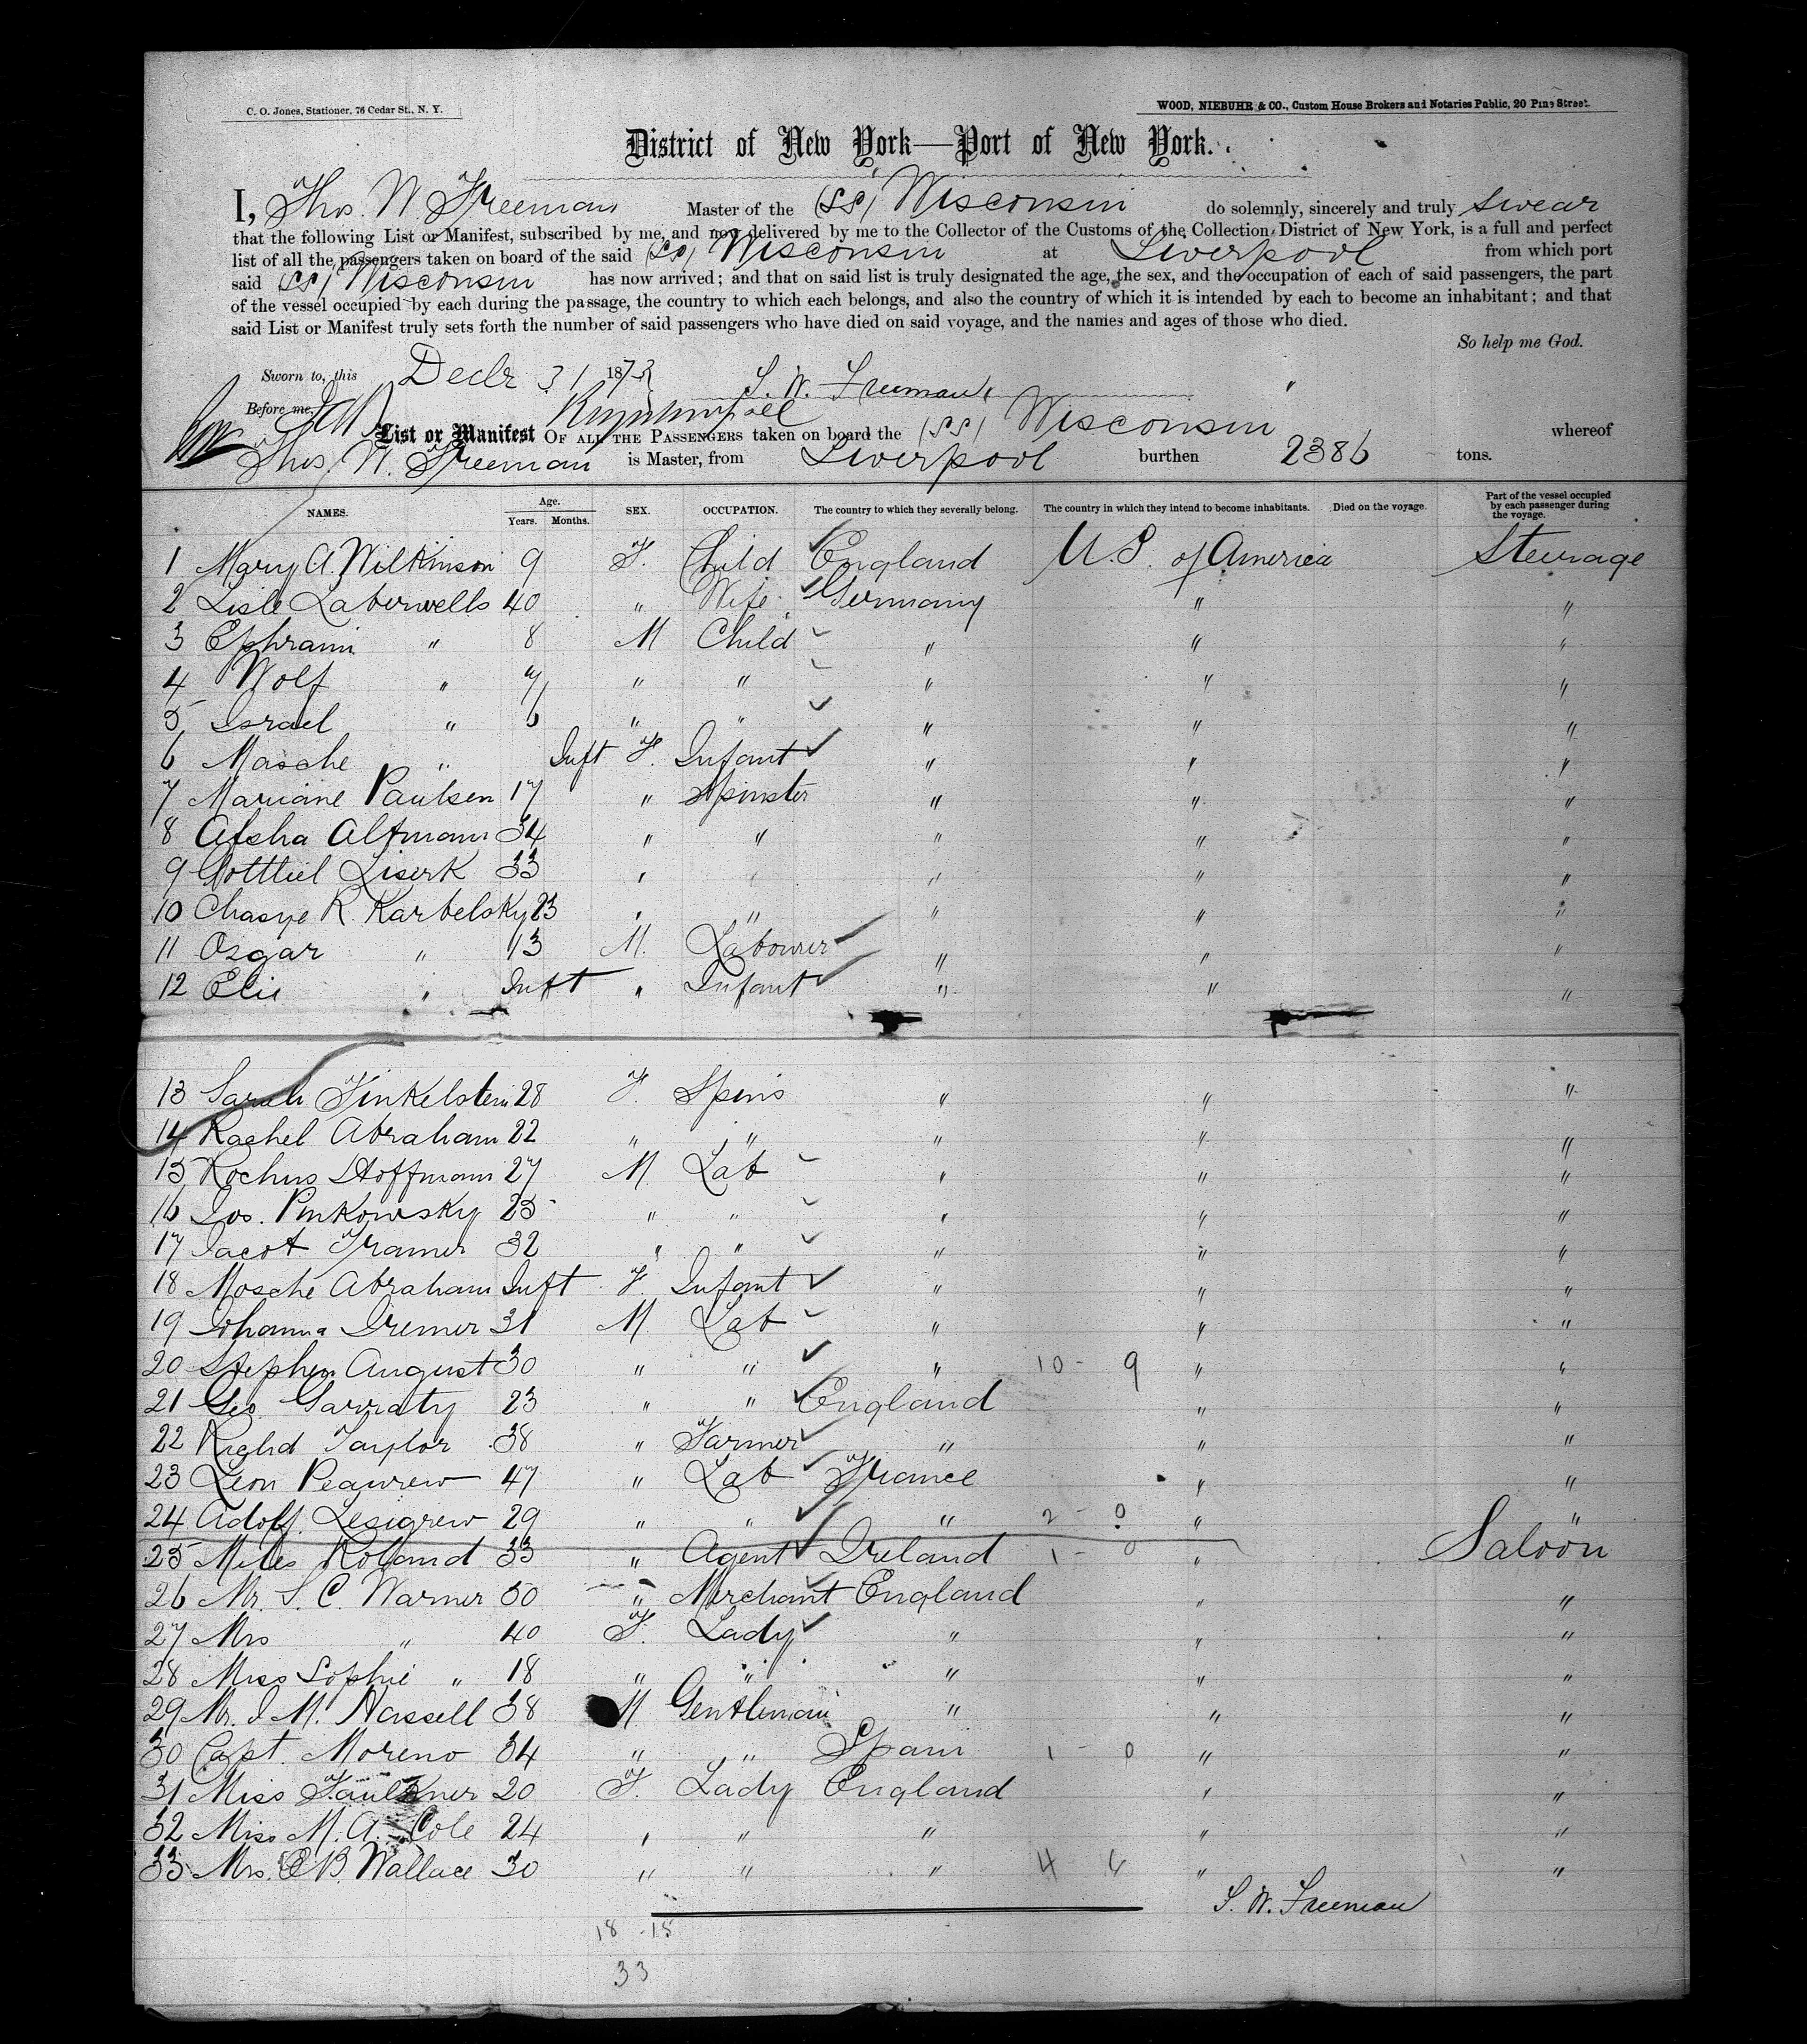 C. O. Jones, Stationer, 76 Cedar St., N. Y.
WOOD, NIEBUHR & CO., Custom House Brokers and Notaries Public, 20 Pine Street.
District of New York—Port of New York.
I, Thos. W. Freeman Master of the (SS) Wisconsin do solemnly, sincerely and truly swear
that the following List or Manifest, subscribed by me, and now delivered by me to the Collector of the Customs of the Collection District of New York, is a full and perfect
list of all the passengers taken on board of the said (SS) Wisconsin at Liverpool from which port
said (SS) Wisconsin has now arrived; and that on said list is truly designated the age, the sex, and the occupation of each of said passengers, the part
of the vessel occupied by each during the passage, the country to which each belongs, and also the country of which it is intended by each to become an inhabitant; and that
said List or Manifest truly sets forth the number of said passengers who have died on said voyage, and the names and ages of those who died.
So help me God.
Sworn to, this Decbr 31 1873 T. W. Freeman
Before me,
List or Manifest OF ALL THE PASSENGERS taken on board the (SS) Wisconsin whereof
Thos. W. Freeman is Master, from Liverpool burthen 2386 tons.
NAMES. Age. Years. Months. SEX. OCCUPATION. The country to which they severally belong. The country in which they intend to become inhabitants. Died on the voyage. Part of the vessel occupied by each passenger during the voyage.
1 Mary A. Wilkinson 9 F. Child England U.S. of America Steerage
2 Lisle Laberwells 40 " Wife Germany " "
3 Ephraim " 8 M Child " " "
4 Wolf " 7 " " " " "
5 Israel " 6 " " " " "
6 Mosche " Inft F. Infant " " "
7 Mariane Paulsen 17 " Spinster " " "
8 Alsha Altmann 34 " " " " "
9 Gottliel Liserk 33 " " " " "
10 Chasye R. Karbelsky 23 " " " " "
11 Osgar " 13 M. Labourer " " "
12 Elie " Inft " Infant " " "
13 Sarah Finkelstein 28 F. Spins " " "
14 Rachel Abraham 22 " " " " "
15 Rochus Hoffmann 27 M Lab " " "
16 Jos. Pinkowsky 25 " " " " "
17 Jacob Framer 32 " " " " "
18 Mosche Abraham Inft F. Infant " " "
19 Johanna Diemer 31 M. Lab " " "
20 Stephen August 30 " " " 10 - 9 " "
21 Geo. Garraty 23 " " England " "
22 Richd Taylor 38 " Farmer " " "
23 Leon Peaurew 47 " Lab France " "
24 Adolf. Lesigrew 29 " " " 2 - 0 " "
25 Miles Roland 33 " Agent Ireland 1 - 0 " Saloon
26 Mr. S. C. Warner 50 " Merchant England " "
27 Mrs " 40 F. Lady " " "
28 Miss Sophie " 18 " " " " "
29 Mr. J. M. Hassell 38 M Gentleman " " "
30 Capt. Moreno 34 " " Spain 1 - 0 " "
31 Miss Faulkner 20 F. Lady England " "
32 Miss M. A. Cole 24 " " " " "
33 Mrs. E B. Wallace 30 " " " 4 6 " "
T. W. Freeman
18 - 15
33